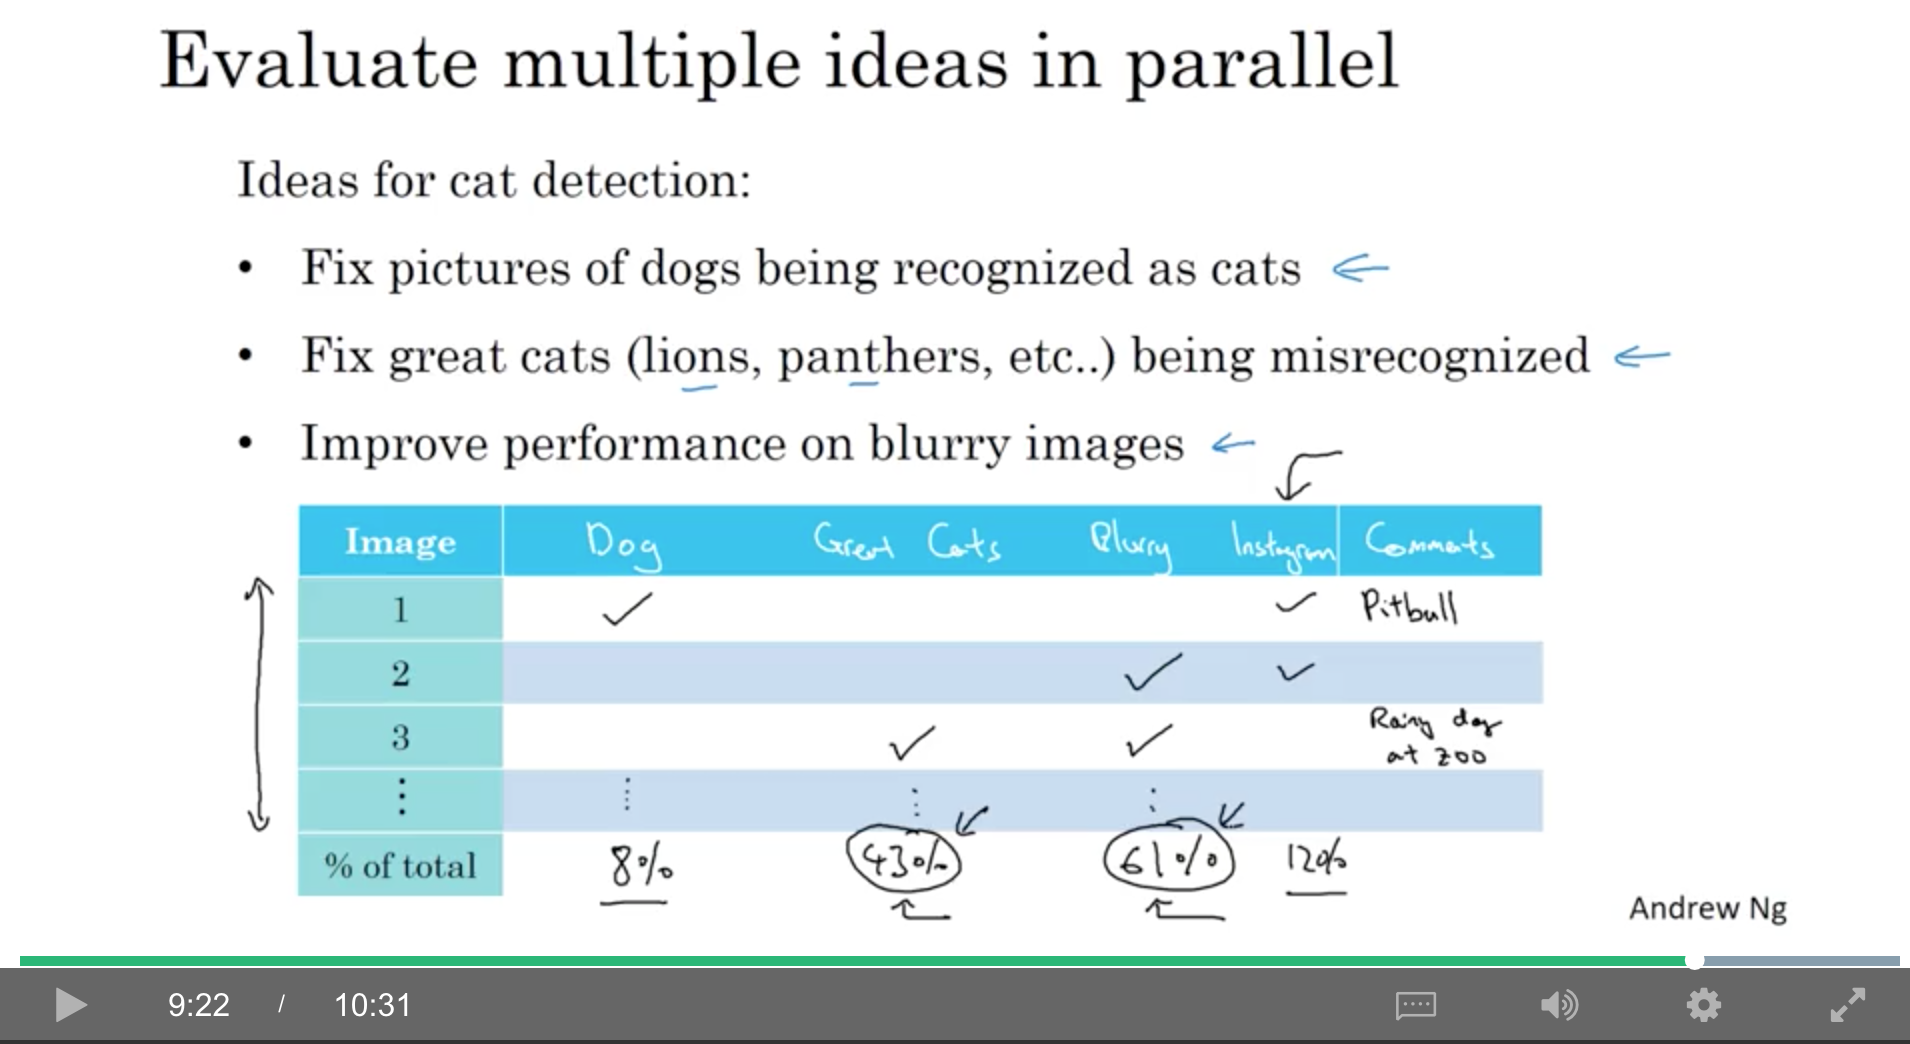 Evaluate multiple ideas in parallel
Ideas for cat detection:
• Fix pictures of dogs being recognized as cats
• Fix great cats (lions, panthers, etc..) being misrecognized
• Improve performance on blurry images
Image Dog Great Cats Blurry Instagram Comments
1 ✓ ✓ Pitbull
2 ✓ ✓
3 ✓ ✓ Rainy day
at zoo
⋮ ⋮ ⋮ ⋮
% of total 8% 43% 61% 12%
Andrew Ng
9:22 / 10:31